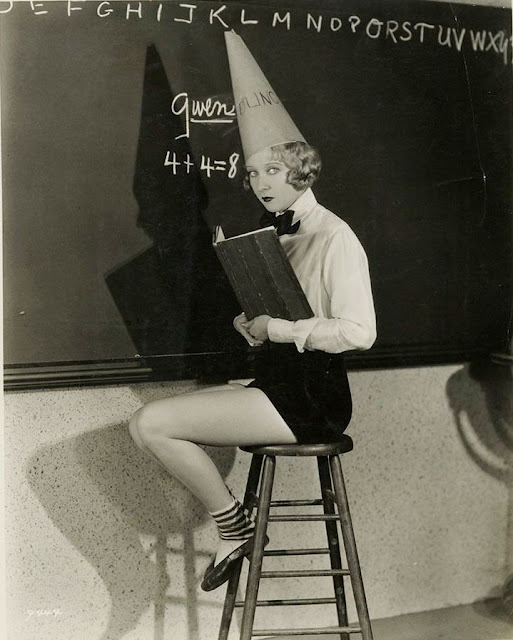 D E F G H I J K L M N O P Q R S T U V W X Y
DUNC
Gwen
4+4=8